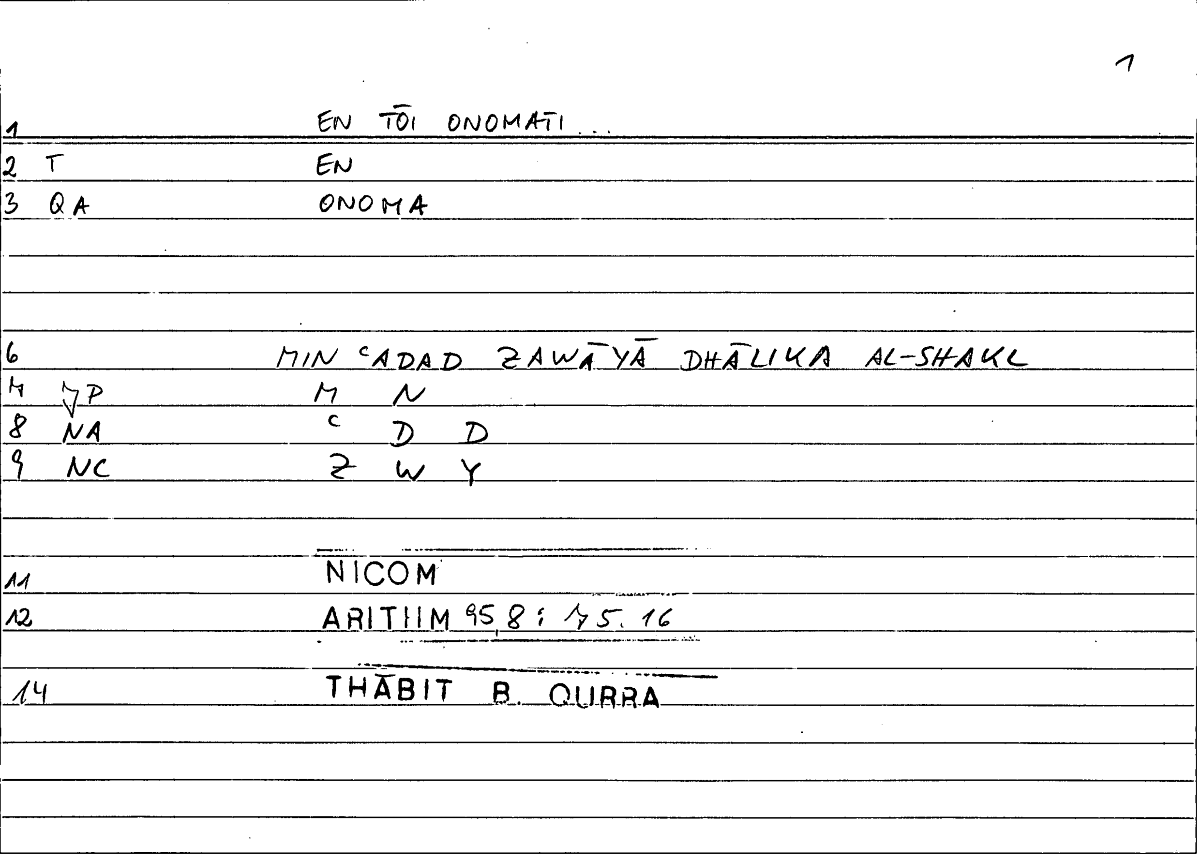 1
1 EN TŌI ONOMATI...
2 T EN
3 QA ONOMA
6 MIN ʿADAD ZAWĀYĀ DHĀLIKA AL-SHAKL
7 7P M N
8 NA ʿ D D
9 NC Z W Y
11 NICOM
12 ARITHM 95,8 : 75.16
14 THĀBIT B. QURRA